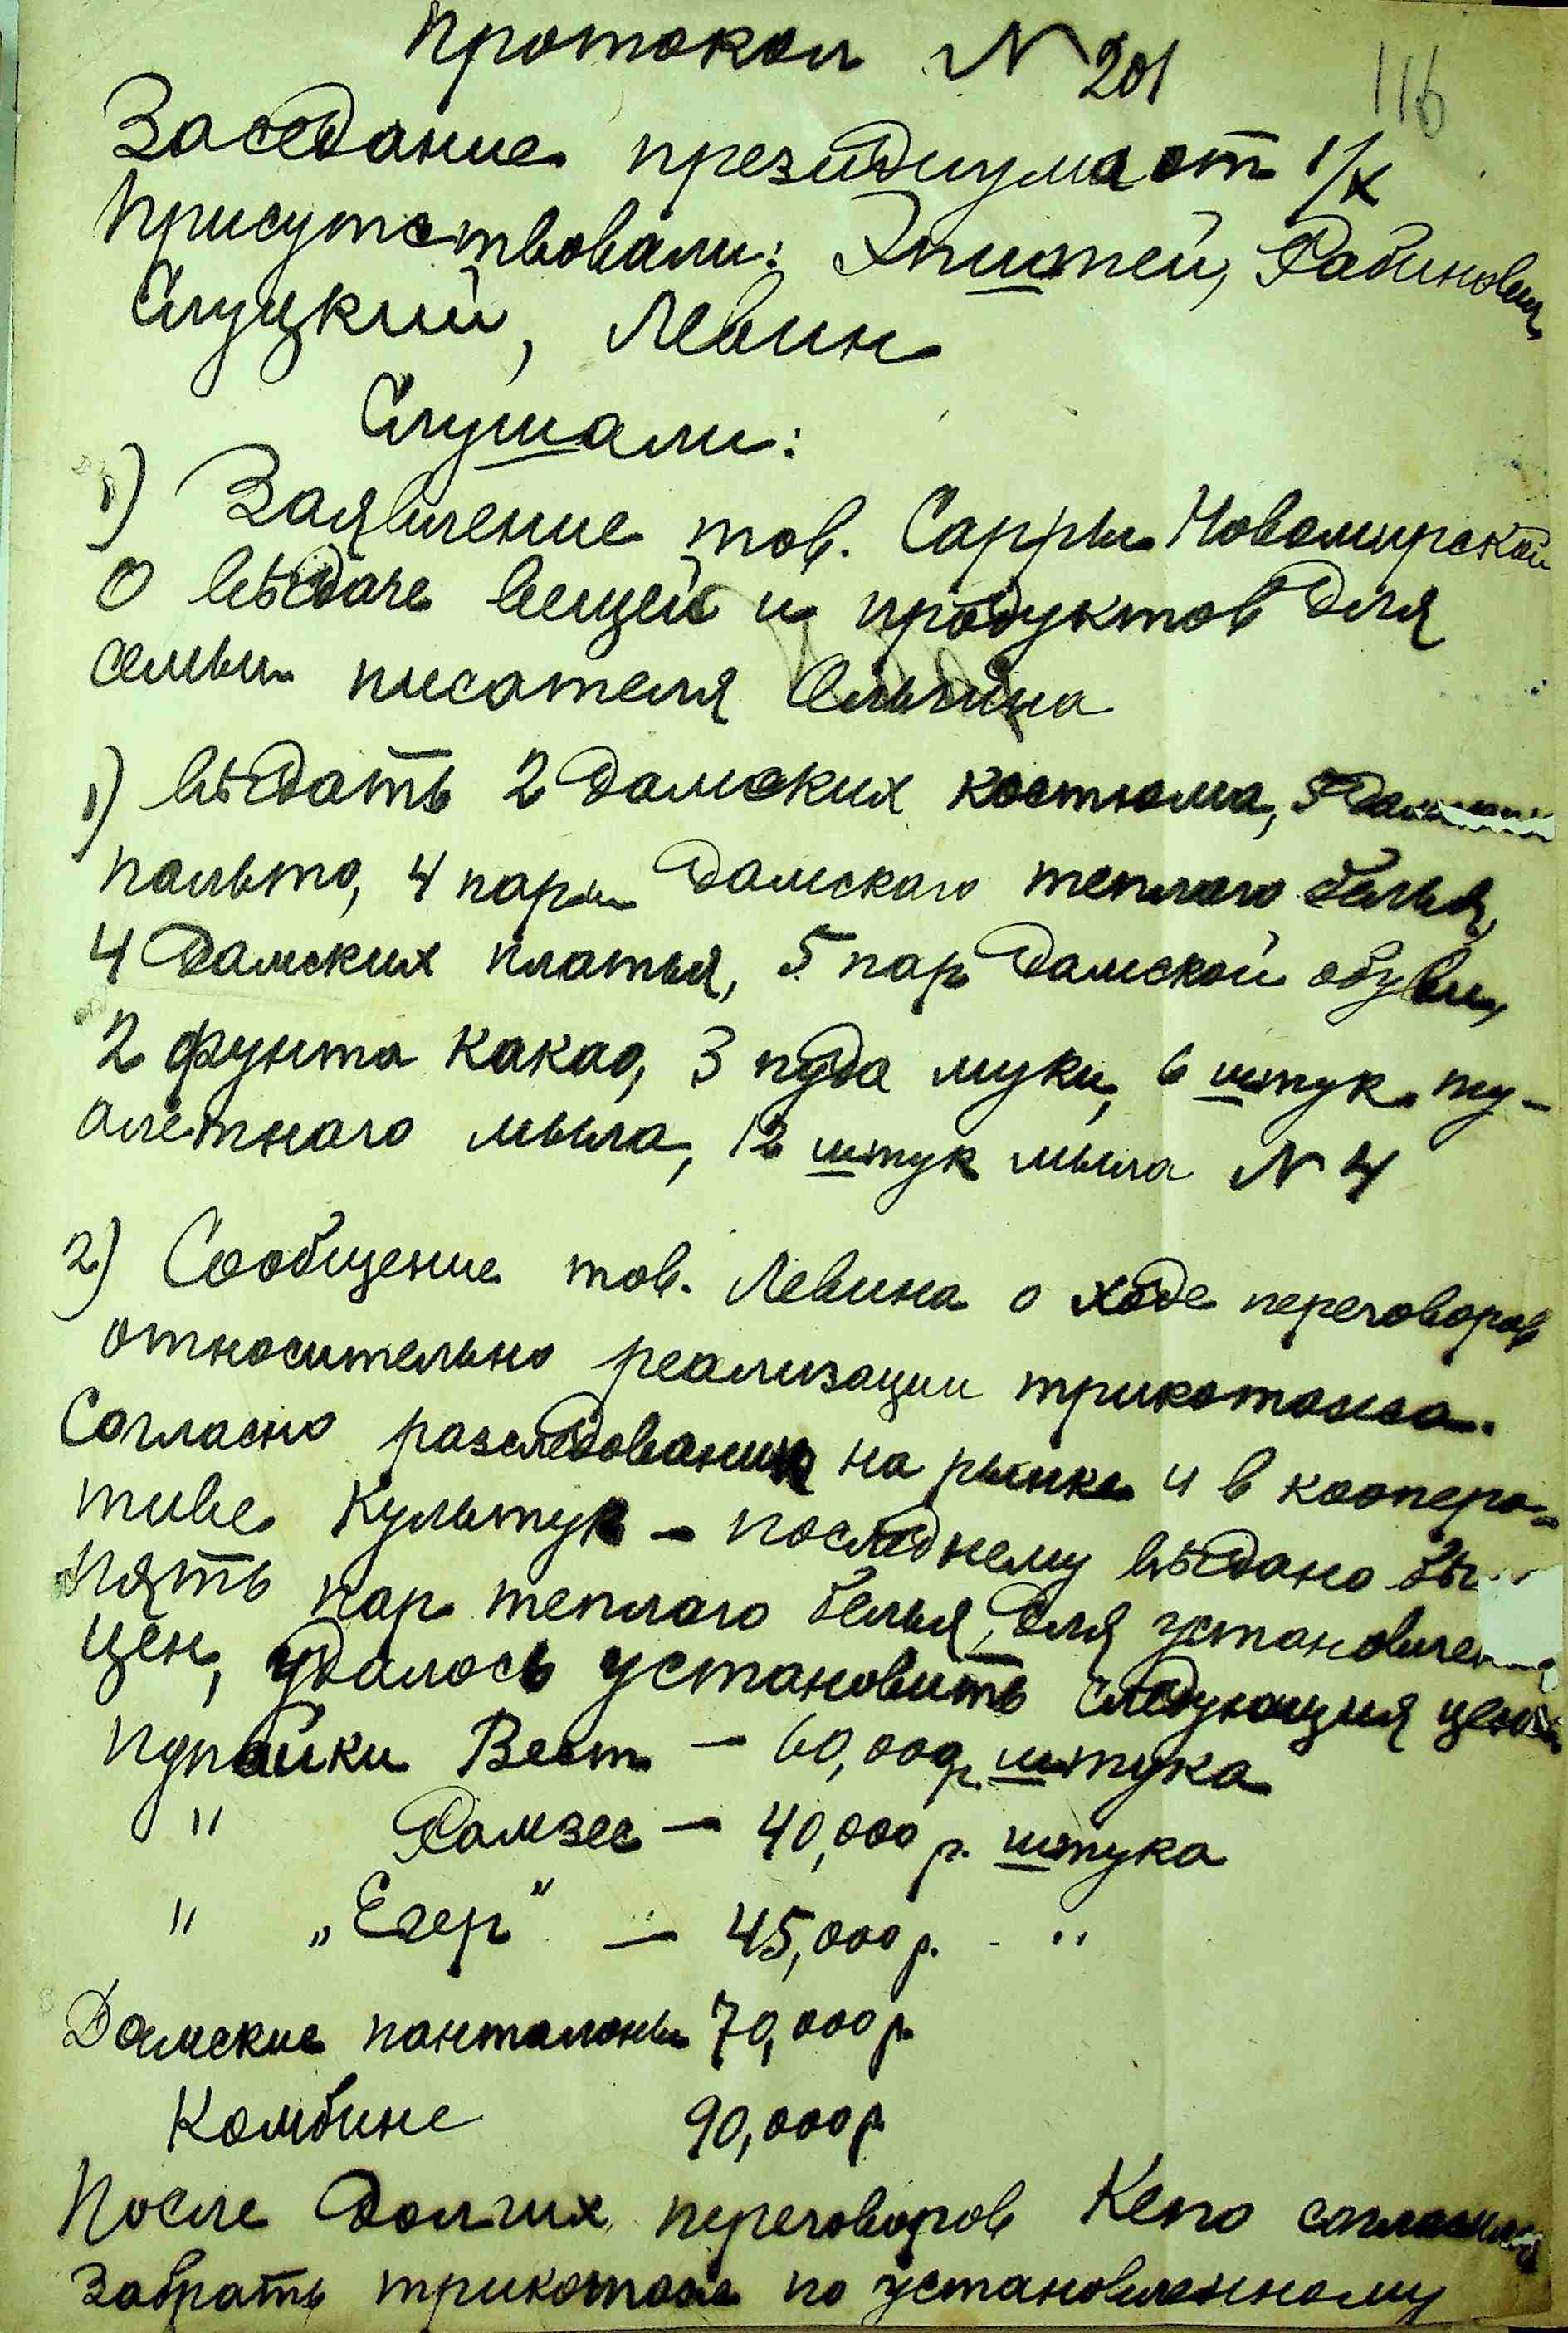 Протокол N 201
116
Заседание президиума от 1/X
Присутствовали: Эпштей, Рабинович,
Слуцкий, Левин
Слушали:
1) Заявление тов. Сарры Новомирской
О выдаче вещей и продуктов для
семьи писателя
1) выдать 2 дамских костюма, 5
пальто, 4 пары дамскаго теплаго белья,
4 дамских платья, 5 пар дамской обуви,
2 фунта какао, 3 пуда муки, 6 штук ту-
алетнаго мыла, 12 штук мыла N 4
2) Сообщение тов. Левина о ходе переговоров
относительно реализации трикотажа.
Согласно разследования на рынке и в коопера-
тиве Культук – последнему выдано
пять пар теплаго белья, для установления
цен, удалось установить следующия цены
Вест – 60,000р. штука
" Рамзес – 40,000 р. штука
" „Егер" – 45,000 р. - "
Дамские панталоны 70,000р.
Комбине 90,000р.
После долгих переговоров Кепо
забрать трикотаж по установленному